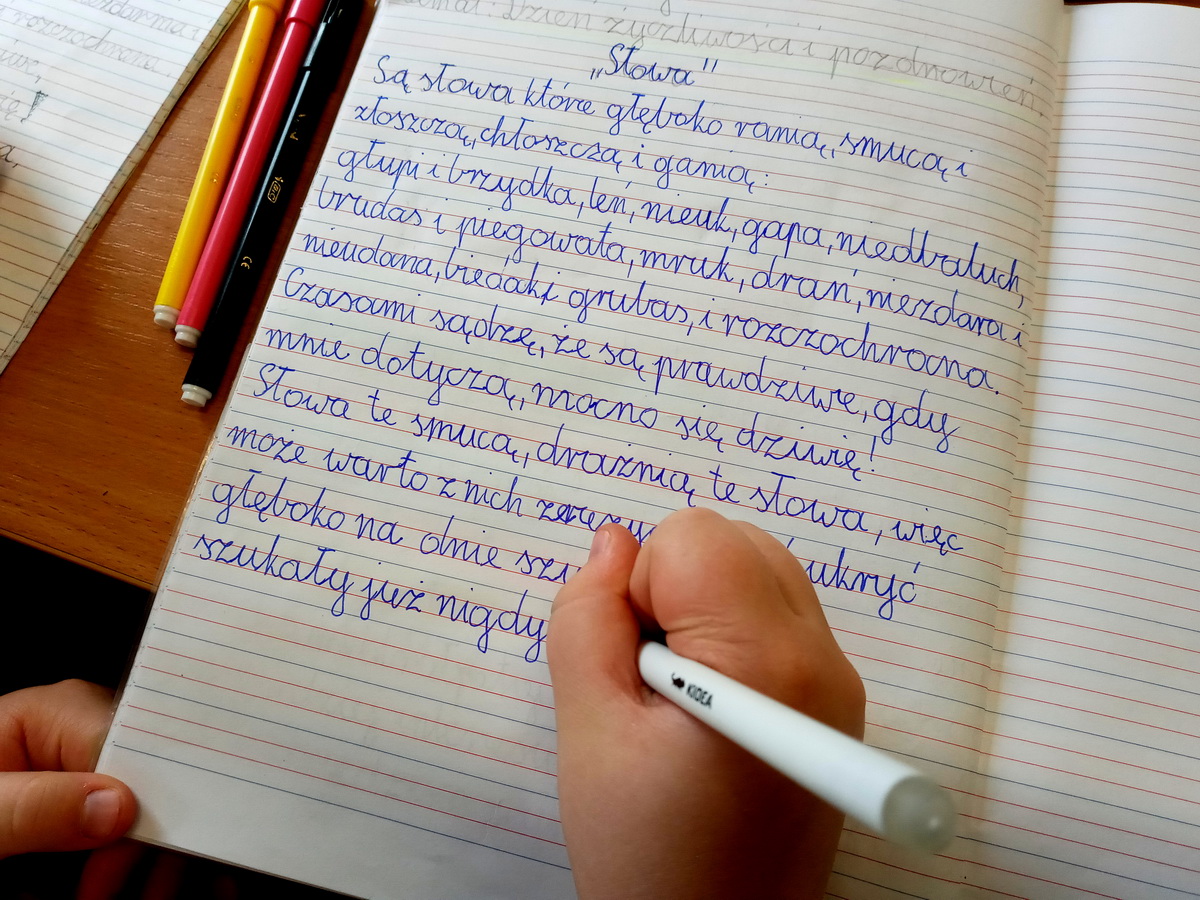 Temat: Dzień życzliwości i pozdrowień
„Słowa"
Są słowa które głęboko ranią, smucą i
złoszczą, chłoszczą i ganią:
głupi i brzydka, leń, nieuk, gapa, niedbaluch,
brudas i piegowata, mruk, drań, niezdara i
nieudana, biedaki grubas, i rozczochrana.
Czasami sądzę, że są prawdziwe, gdy
mnie dotyczą, mocno się dziwię!
Słowa te smucą, drażnią te słowa, więc
może warto z nich ukryć
głęboko na dnie
szukały już nigdy
KIDEA